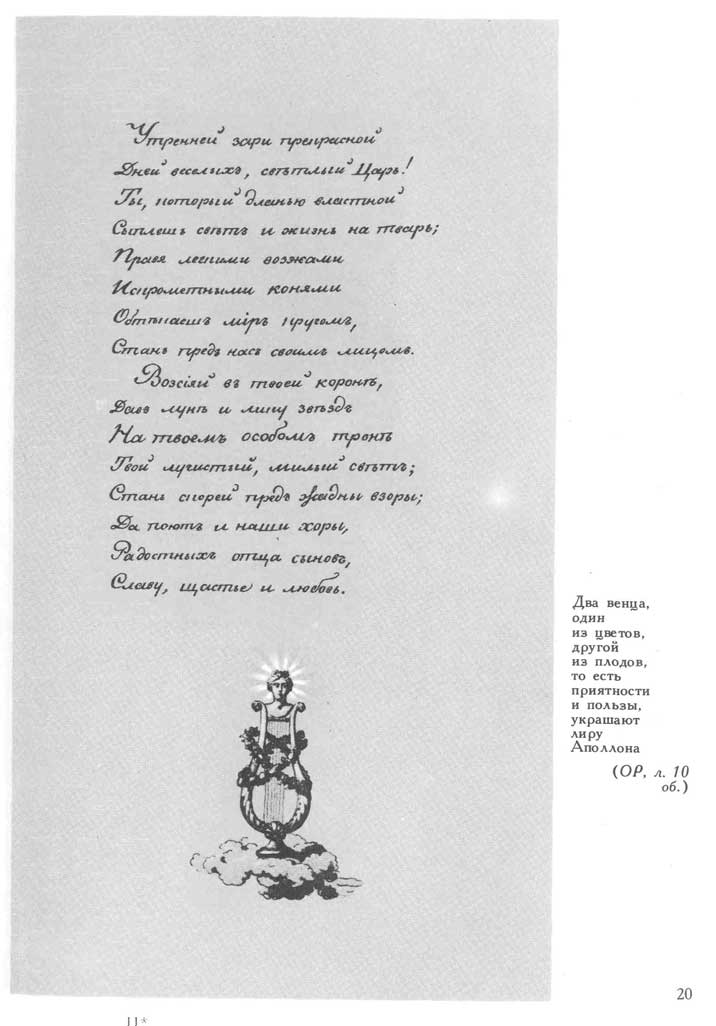 Утренней зари прекрасной
Дней веселыхъ, свѣтлый Царь!
Ты, который дланью властной
Сыплешь свѣтъ и жизнь на тварь;
Правя легкими возжами
Искрометными конями
Обтѣкаешь міръ кругомъ,
Стань предъ насъ своимъ лицомъ.
Возсіяй въ твоей коронѣ,
Даве лунѣ и лику звѣздъ
На твоемъ особомъ тронѣ
Твой лучистый, милый свѣтъ;
Стань скорей предъ жадны взоры;
Да поютъ и наши хоры,
Радостныхъ отца сыновъ,
Славу, щастье и любовь.
Два венца,
один
из цветов,
другой
из плодов,
то есть
приятности
и пользы,
украшают
лиру
Аполлона
(ОР, л. 10
об.)
20
11*